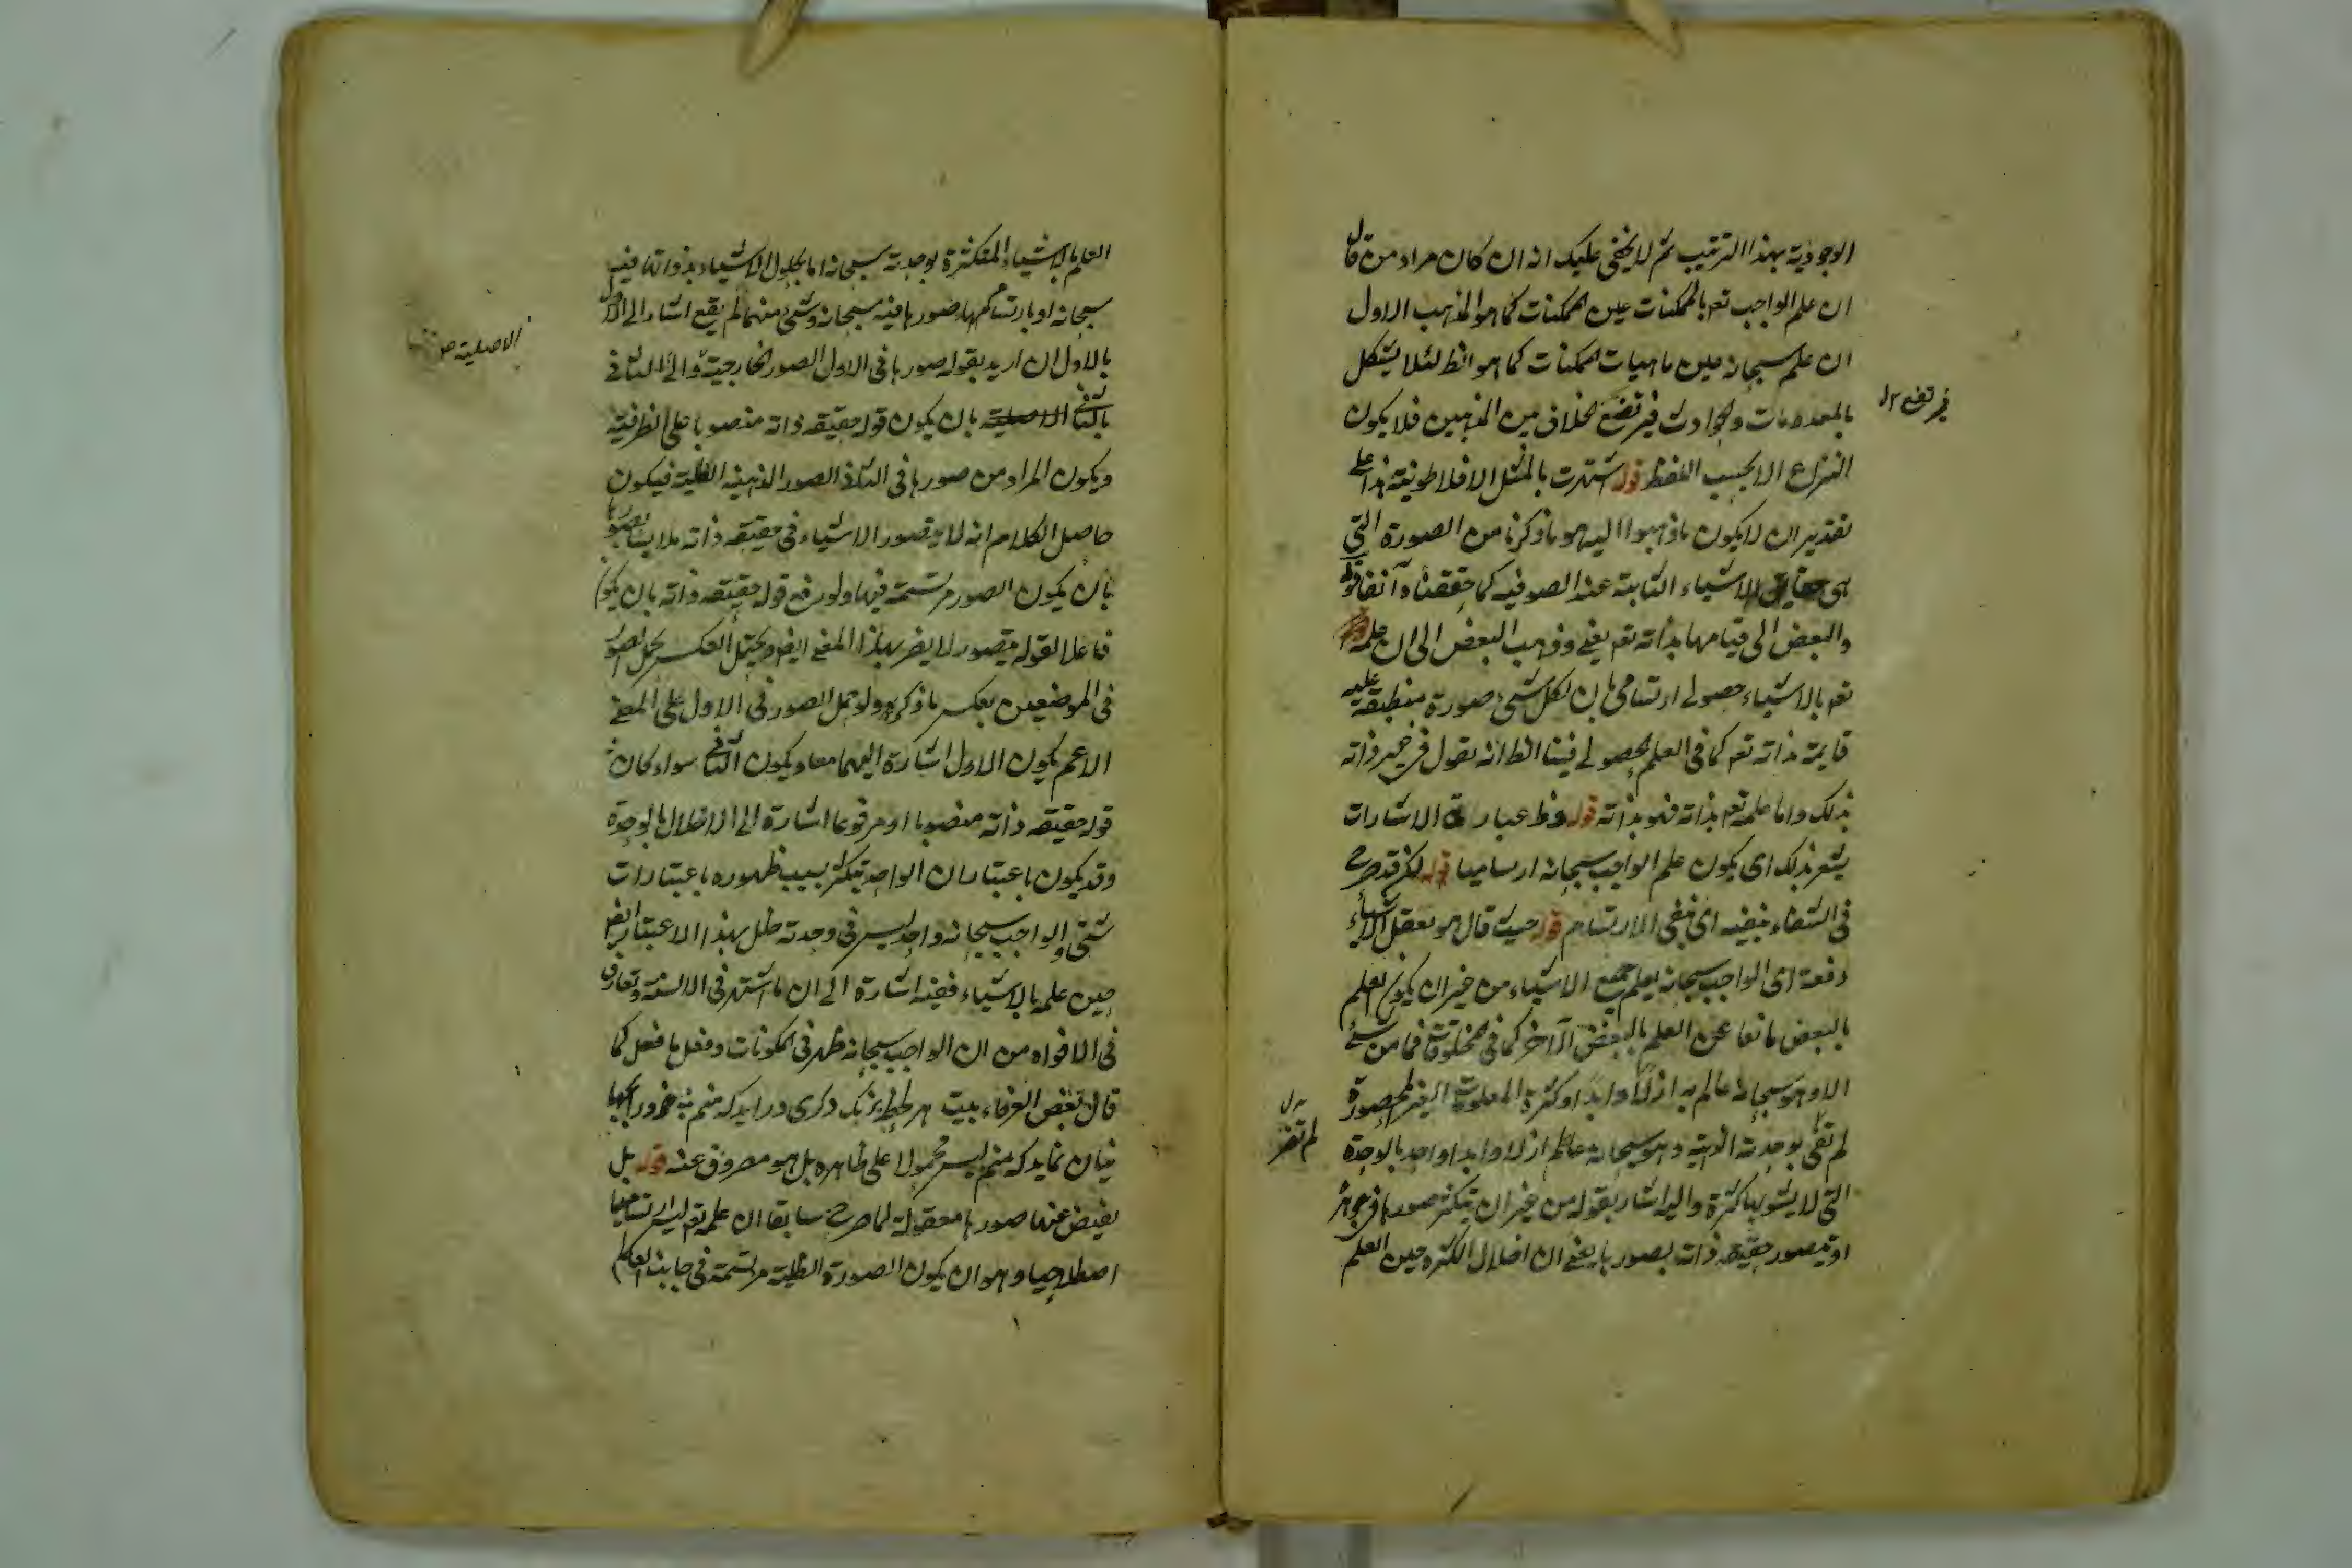 الوجودية بهذا الترتيب ثم لا يخفى عليك انه ان كان مراد من قال
ان علم الواجب تعم بالممكنات عين الممكنات كما هو المذهب الاول
ان علم سبحانه عين ماهيات الممكنات كما هو الظ لئلا يشكل
بالمعدومات والحوادث فيرتفع الخلاف بين المذهبين فلا يكون
فيرتفع
النزاع الا بحسب اللفظ قوله اشتهرت بالمثل الافلاطونية هذا على
تقدير ان لا يكون ما ذهبوا اليه هو ما ذكرنا من الصورة التي
هي حقايق الاشياء الثابتة عند الصوفية كما حققناه آنفا قوله
والبعض الى قيامها بذاته تعم يعني وذهب البعض الى ان علمه
تعم بالاشياء حصولي ارتسامي بان لكل شيء صورة منطبقة عليه
قايمة بذاته تعم كما في العلم الحصولي فينا الظ انه يقول في غير ذاته
بذلك واما علمه تعم بذاته فهو بذاته قوله وظ عبارة الاشارات
يشعر بذلك اى يكون علم الواجب سبحانه ارساميا قوله لكن قد صرح
في الشفاء بنفيه اى نفى الارتسام قوله حيث قال هو يعقل الاشياء
دفعة اى الواجب سبحانه يعلم جميع الاشياء من غير ان يكون العلم
بالبعض مانعا عن العلم بالبعض الآخر كما في المخلوقات فما من شيء
الا وهو سبحانه عالم به ازلا وابدا وكثرة المعلومات الغير المحصورة
لم تقر بوحدته الذاتية وهو سبحانه عالم ازلا وابدا واحد بالوحدة
لم تضر
التي لا يشوبها كثرة واليه اشار بقوله من غير ان يتكثر صورها في جوهره
او يتصور حقيقة ذاته بصورها يعني ان اخلال الكثرة حين العلم
العلم بالاشياء المتكثرة بوحدته سبحانه اما بحلول الاشياء بذواتها فيه
سبحانه او بارتسامها صورها فيه سبحانه وشيء منهما لم يقع اشار الى الاول
بالاول ان اريد بقوله صورها في الاول الصور الخارجية والى الثاني
بالثاني بان يكون قوله حقيقة ذاته منصوبا على الظرفية
الاصلية
ويكون المراد من صورها في الثاني الصور الذهنية الظلية فيكون
حاصل الكلام انه لا يتصور الاشياء في حقيقة ذاته ملابسا بصورها
بان يكون الصور مرتسمة فيها ولو رفع قوله حقيقة ذاته بان يكون
فاعلا لقوله يتصور لا يضر بهذا المعنى ايضا ويحتمل العكس بحمل الصور
في الموضعين بعكس ما ذكر ولو حمل الصور في الاول على المعنى
الاعم يكون الاول اشارة اليهما معا ويكون الثاني سواء كان
قوله حقيقة ذاته منصوبا او مرفوعا اشارة الى الاخلال بالوحدة
وقد يكون باعتبار ان الواحد يتكثر بسبب ظهوره باعتبارات
شتى والواجب سبحانه واحد ليس في وحدته خلل بهذا الاعتبار ايضا
حين علمه بالاشياء ففيه اشارة الى ان ما اشتهر في الالسنة وتعارف
في الافواه من ان الواجب سبحانه ظهر في المكونات وفعل ما فعل كما
قال بعض العرفاء بيت هر لحظه برنك دكرى در ايد كه منم
نمايد كه منم ليس محمولا على ظاهره بل هو مصروف عنه قوله بل
يفيض عنها صورها معقولة لما صرح سابقا ان علمه تعم ليس ارتساميا
اصطلاحيا وهو ان يكون الصورة الظلية مرتسمة في جانب العالم